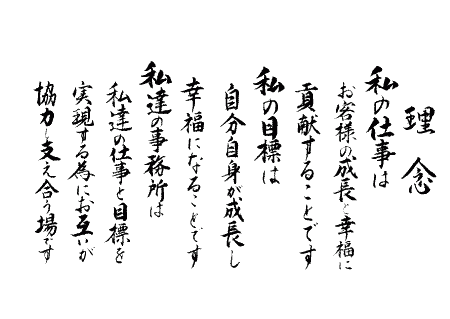 理念
私の仕事は
お客様の成長と幸福に
貢献することです
私の目標は
自分自身が成長し
幸福になることです
私達の事務所は
私達の仕事と目標を
実現する為にお互いが
協力し支え合う場です